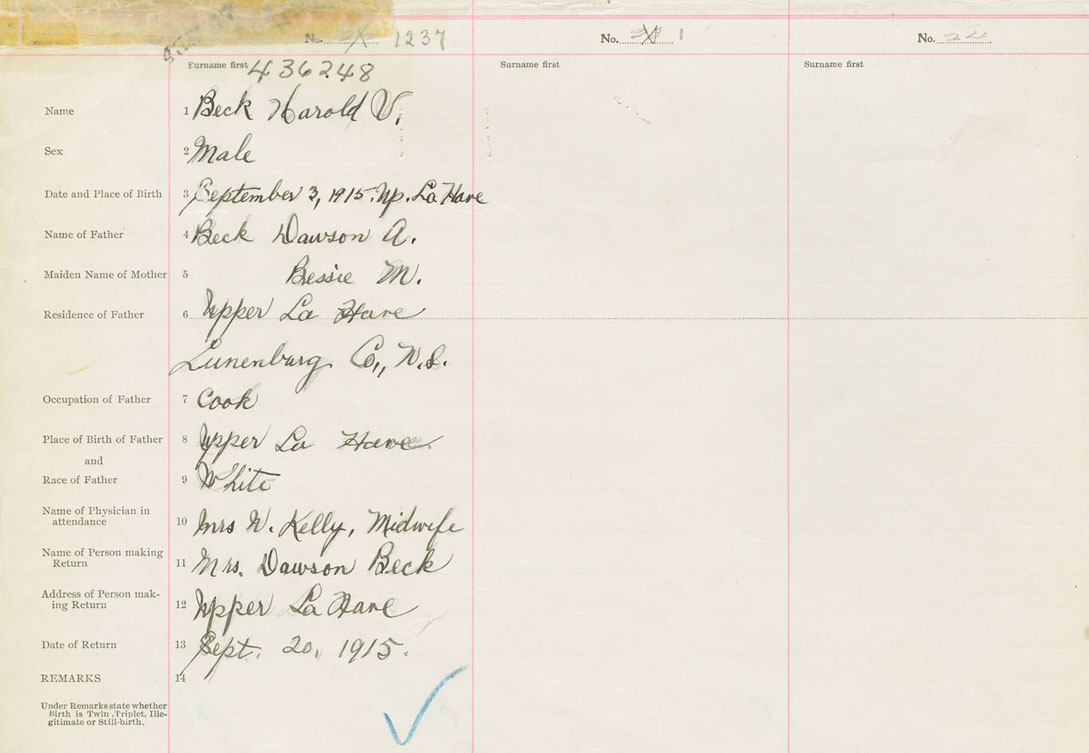 No. 1237
No. 1
No. 24
Surname first 436248
Surname first
Surname first
Name 1 Beck Harold V.
Sex 2 Male
Date and Place of Birth 3 September 3, 1915. Up. La Have
Name of Father 4 Beck Dawson A.
Maiden Name of Mother 5 Bessie M.
Residence of Father 6 Upper La Have
Lunenburg Co., N.S.
Occupation of Father 7 Cook
Place of Birth of Father 8 Upper La Have
and
Race of Father 9 White
Name of Physician in
attendance 10 Mrs W. Kelly, Midwife
Name of Person making
Return 11 Mrs. Dawson Beck
Address of Person mak-
ing Return 12 Upper La Have
Date of Return 13 Sept. 20, 1915.
REMARKS 14
Under Remarks state whether
Birth is Twin, Triplet, Ille-
gitimate or Still-birth.